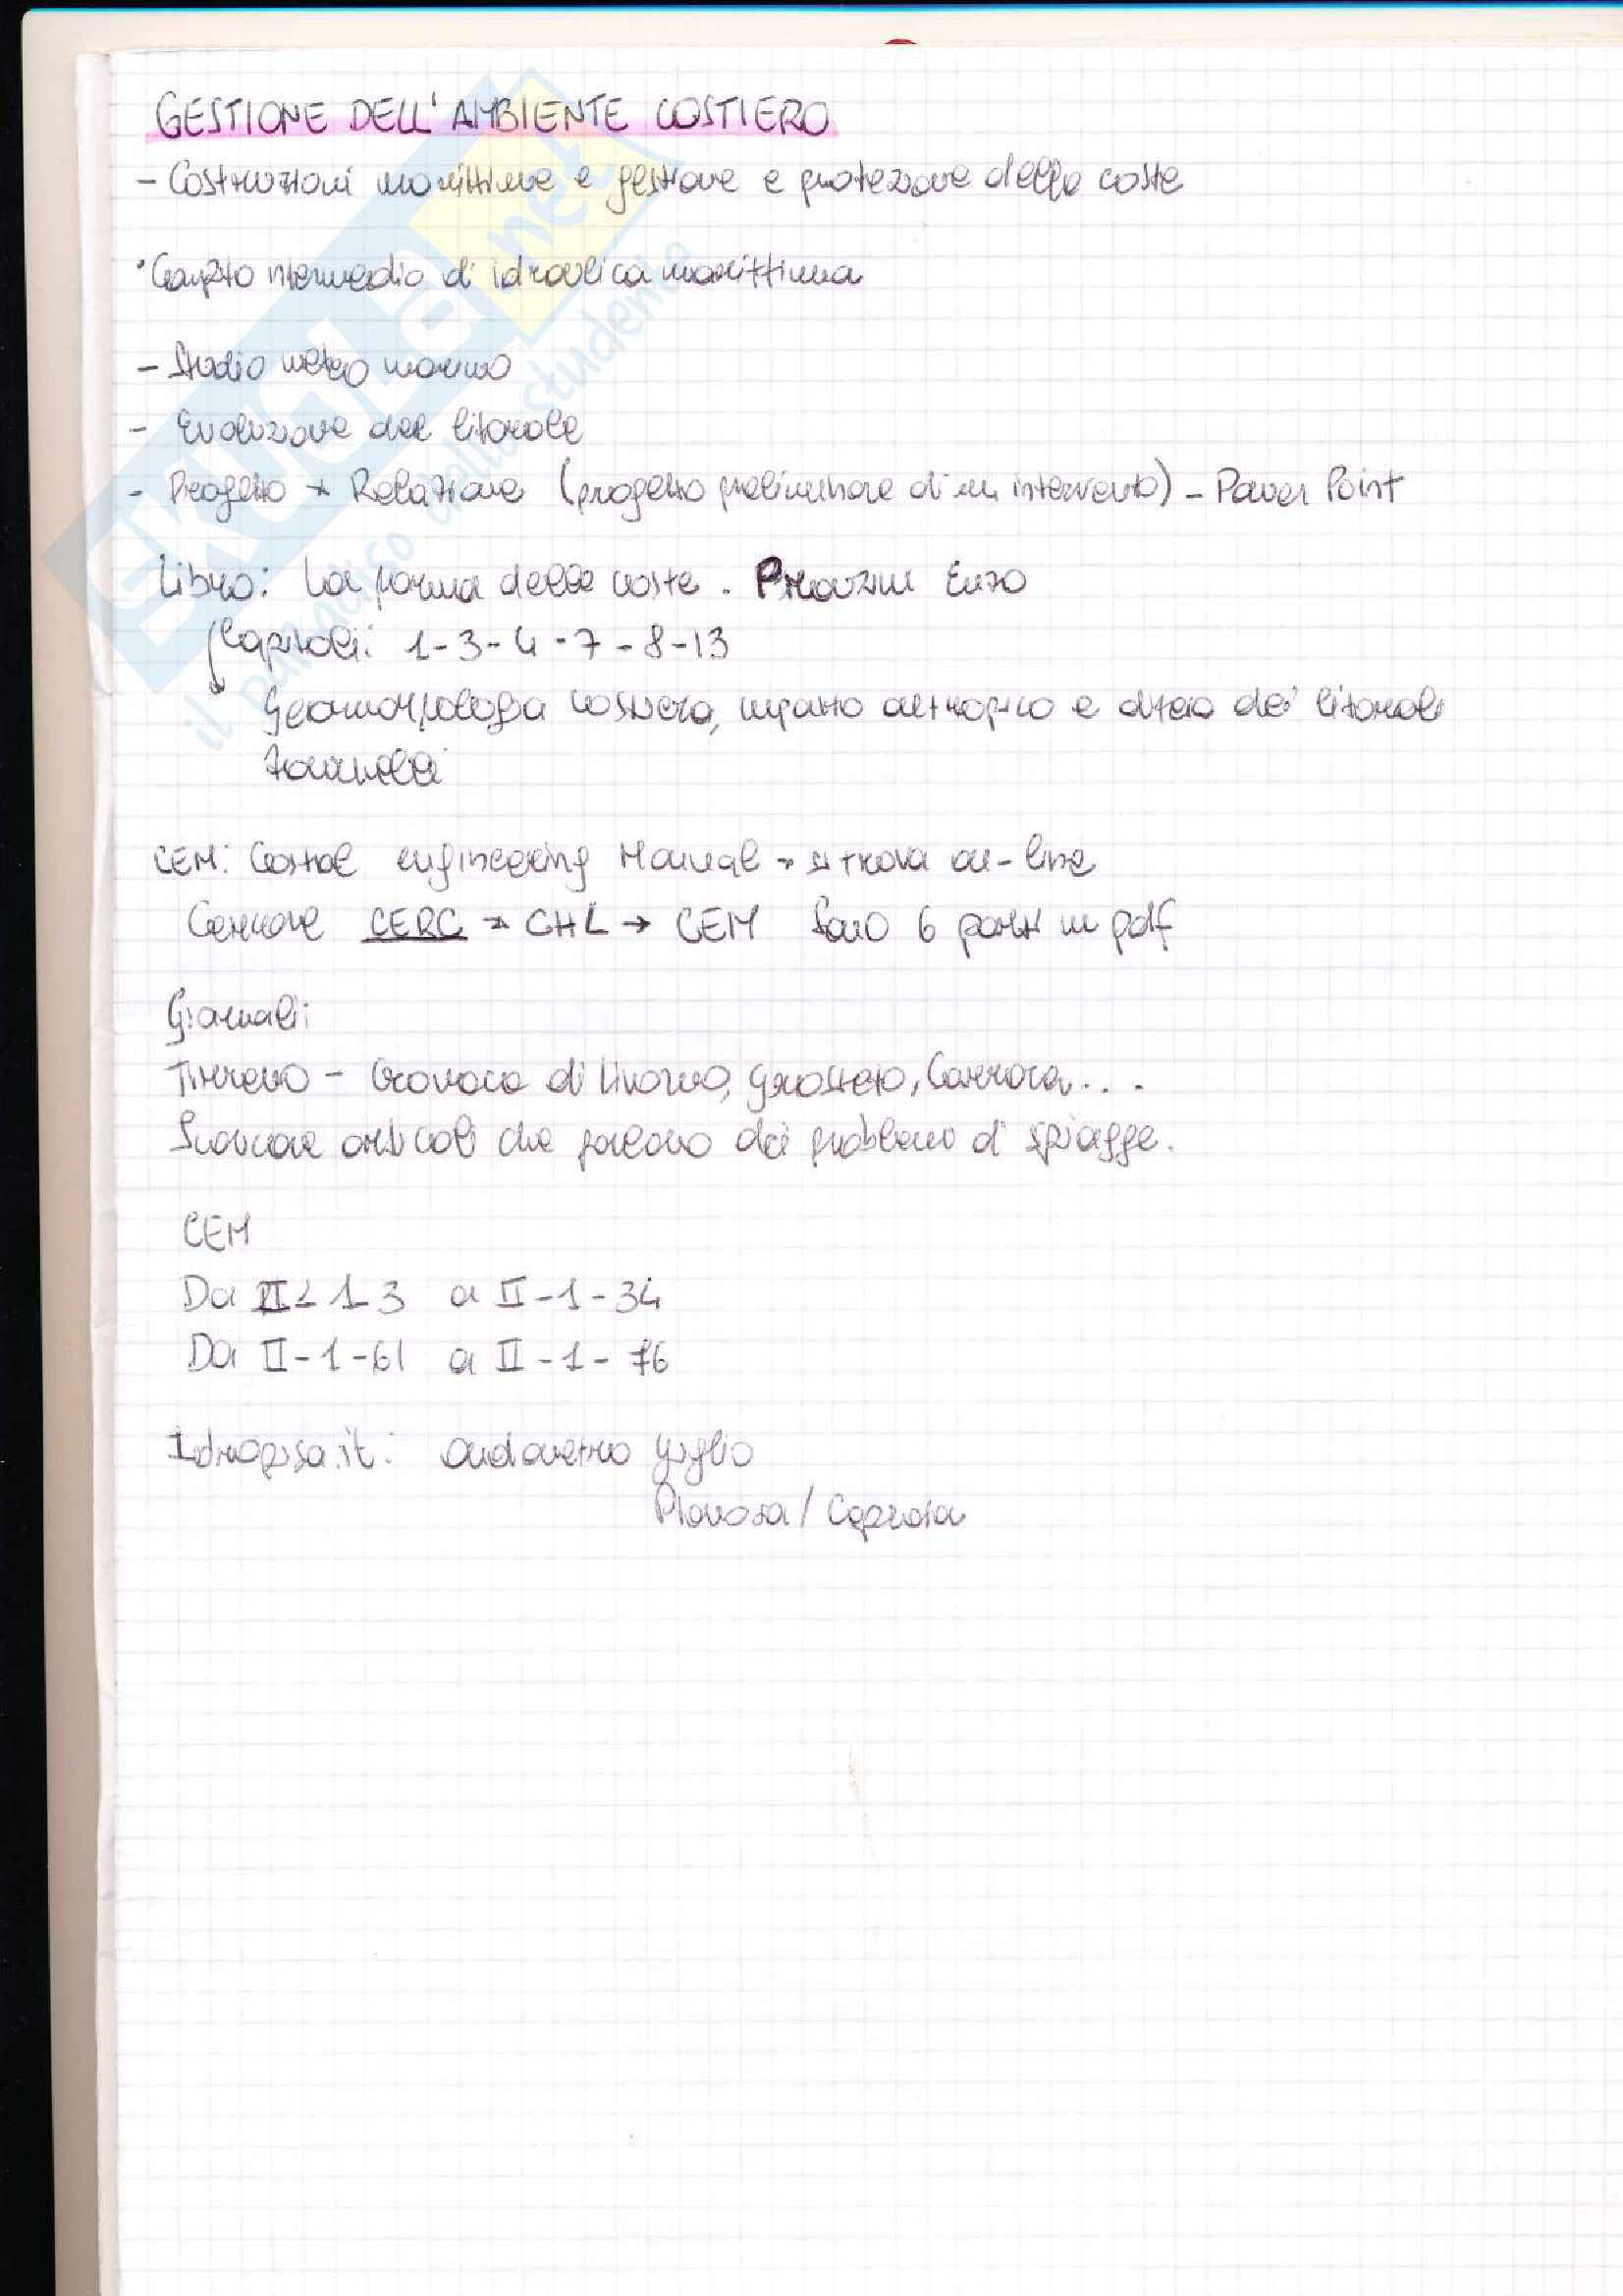 GESTIONE DELL'AMBIENTE COSTIERO
- Costruzioni marittime e gestione e protezione delle coste
• Compito intermedio di idraulica marittima
- Studio meteo marino
- Evoluzione del litorale
- Progetto + Relazione (progetto preliminare di un intervento) - Power Point
Libro: La forma delle coste. Pranzini Enzo
Capitoli: 1-3-4-7-8-13
Geomorfologia costiera, impatto antropico e difesa dei litorali
Zanichelli
CEM: Coastal engineering Manual → si trova on-line
Cercare CERC → CHL → CEM Sono 6 parti in pdf
Giornali:
Tirreno - Cronaca di Livorno, Grosseto, Carrara...
Scaricare articoli che parlano dei problemi di spiagge.
CEM
Da II-1-3 a II-1-34
Da II-1-61 a II-1-76
Idropisa.it: ondametro Giglio
Pianosa / Capraia
SKUOLA.net
il paradiso dello studente